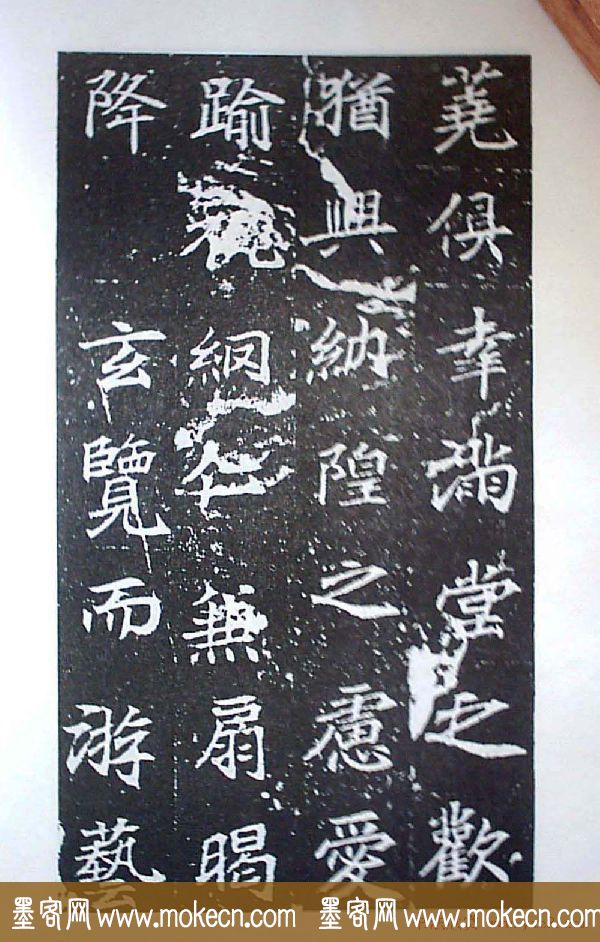 蕘俱幸滿堂之歡
猶興納隍之慮愛
踰祝網仁兼扇暍
降玄覽而游藝
墨客网www.mokecn.com 墨客网www.mokecn.com